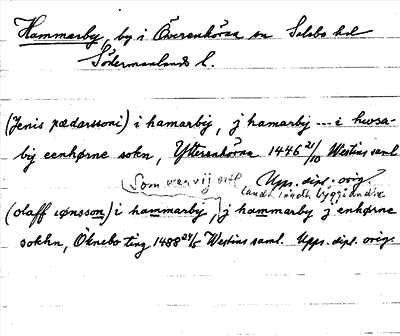 Hammarby, by i Överenhörna sn Selebo hd
Södermanlands l.
(Jenis pædarssoni) i hamarbij, j hamarby --- i husa-
bij eenhørne sokn, Ytterenhörna 1446 21/10 Westins saml
Som war ij Upps. dipl. orig.
landh
(olaff iønsson) i hammarbij, j hammarby j enhørne
sokhn, Öknebo ting 1488 24/5 Westins saml. Upps. dipl. orig.